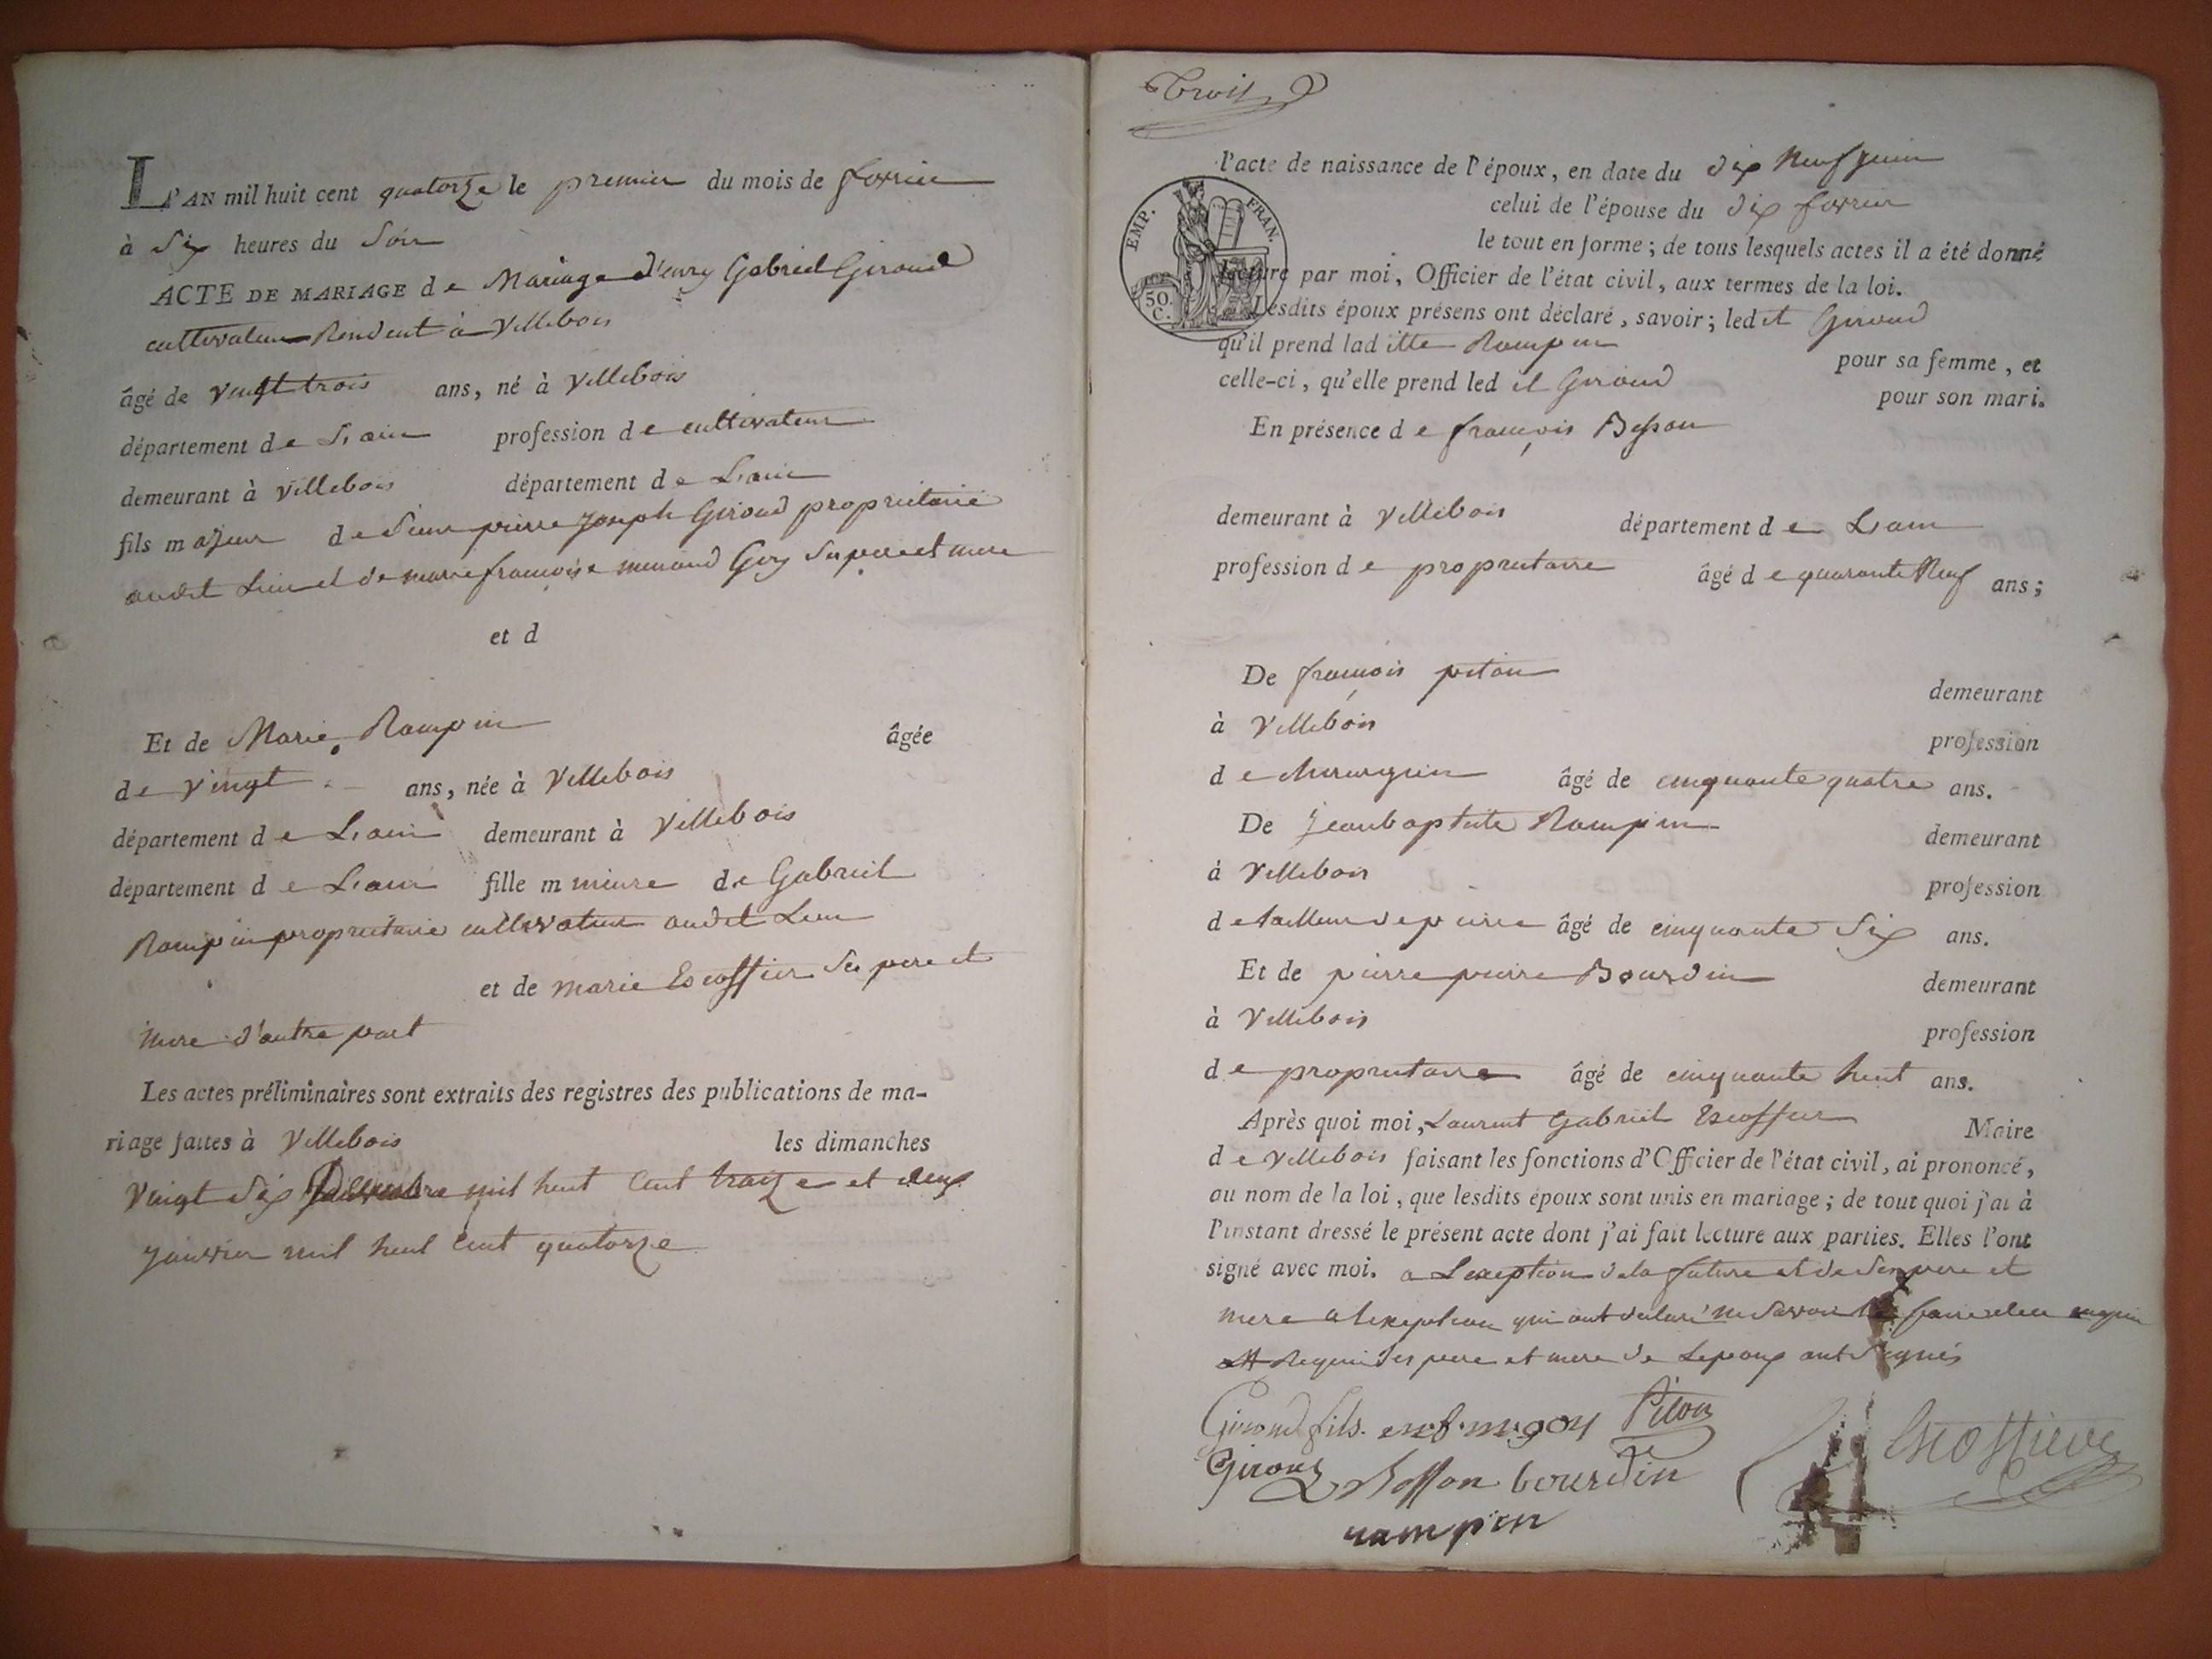 L'AN mil huit cent quatorze le premier du mois de fevrier
à Six heures du Soir
ACTE DE MARIAGE de Mariage d'enry Gabriel Giroud
cultivateur Residant à Villebois
âgé de Vingt trois ans, né à Villebois
département de L'ain profession de cultivateur
demeurant à Villebois département de L'ain
fils majeur de Sieur pierre joseph Giroud proprietaire
audit Lieu et de marie françoise Goy Ses pere et mere
et d
Et de Marie Rampin âgée
de Vingt ans, née à Villebois
département de L'ain demeurant à Villebois
département de L'ain fille mineure de Gabriel
Rampin proprietaire cultivateur audit Lieu
et de marie Escoffier Ses pere et
mere d'autre part
Les actes préliminaires sont extraits des registres des publications de ma-
riage faites à Villebois les dimanches
Vingt Six mil huit Cent traize et deux
janvier mil huit Cent quatorze
Trois
l'acte de naissance de l'époux, en date du dix Neuf juin
celui de l'épouse du dix fevrier
EMP. FRAN.
50.
C.
le tout en forme ; de tous lesquels actes il a été donné
lecture par moi, Officier de l'état civil, aux termes de la loi.
Lesdits époux présens ont déclaré, savoir ; ledit Giroud
qu'il prend laditte Rampin pour sa femme, et
celle-ci, qu'elle prend ledit Giroud pour son mari.
En présence de françois Besson
demeurant à Villebois département de L'ain
profession de proprietaire âgé de quarante Neuf ans ;
De françois piton demeurant
à Villebois profession
de chirurgien âgé de cinquante quatre ans.
De Jean baptiste Rampin demeurant
à Villebois profession
de tailleur de pierre âgé de cinquante Six ans.
Et de pierre pierre Bourdin demeurant
à Villebois profession
de proprietaire âgé de cinquante huit ans.
Après quoi moi, Laurent Gabriel Escoffier Maire
de Villebois faisant les fonctions d'Officier de l'état civil, ai prononcé,
au nom de la loi, que lesdits époux sont unis en mariage ; de tout quoi j'ai à
l'instant dressé le présent acte dont j'ai fait lecture aux parties. Elles l'ont
signé avec moi. a Lexeption de la future et de Ses pere et
mere qui ont declaré ne Savoir faire de ce enquis
et Requis Les pere et mere de Lepoux ont Signés
Giroud fils. Piton
Giroud Besson bourdin Escoffier
rampin